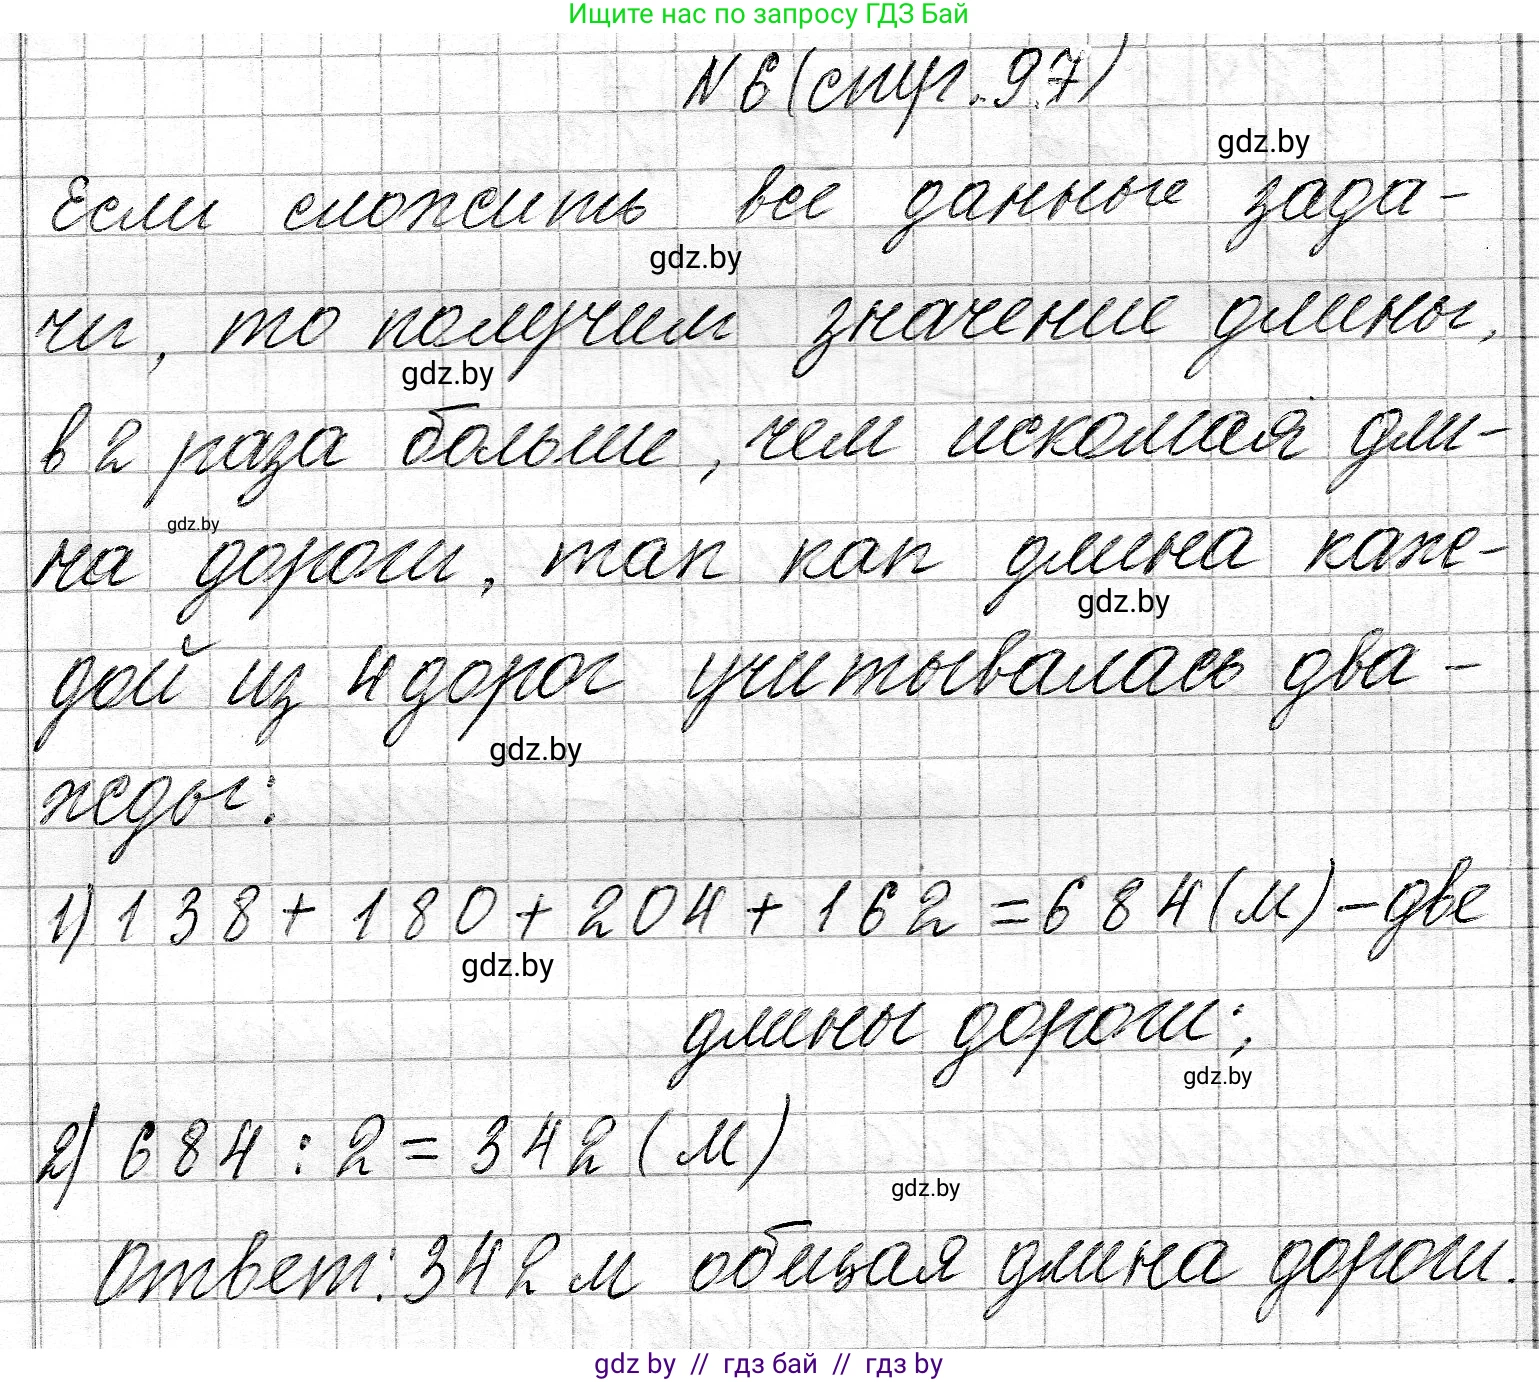 Ищите нас по запросу ГДЗ Бай
№6 (стр. 97)
gdz.by
Если сложить все данные зада-
gdz.by
чи, то получим значение длины,
gdz.by
в 2 раза больше, чем искомая дли-
gdz.by
на дороги, так как длина каж-
gdz.by
дой из 4 дорог учитывалась два-
gdz.by
жды:
1) 138 + 180 + 204 + 162 = 684 (м) – две
gdz.by
длины дороги;
gdz.by
2) 684 : 2 = 342 (м)
gdz.by
Ответ: 342 м общая длина дороги.
gdz by // гдз бай // гдз by